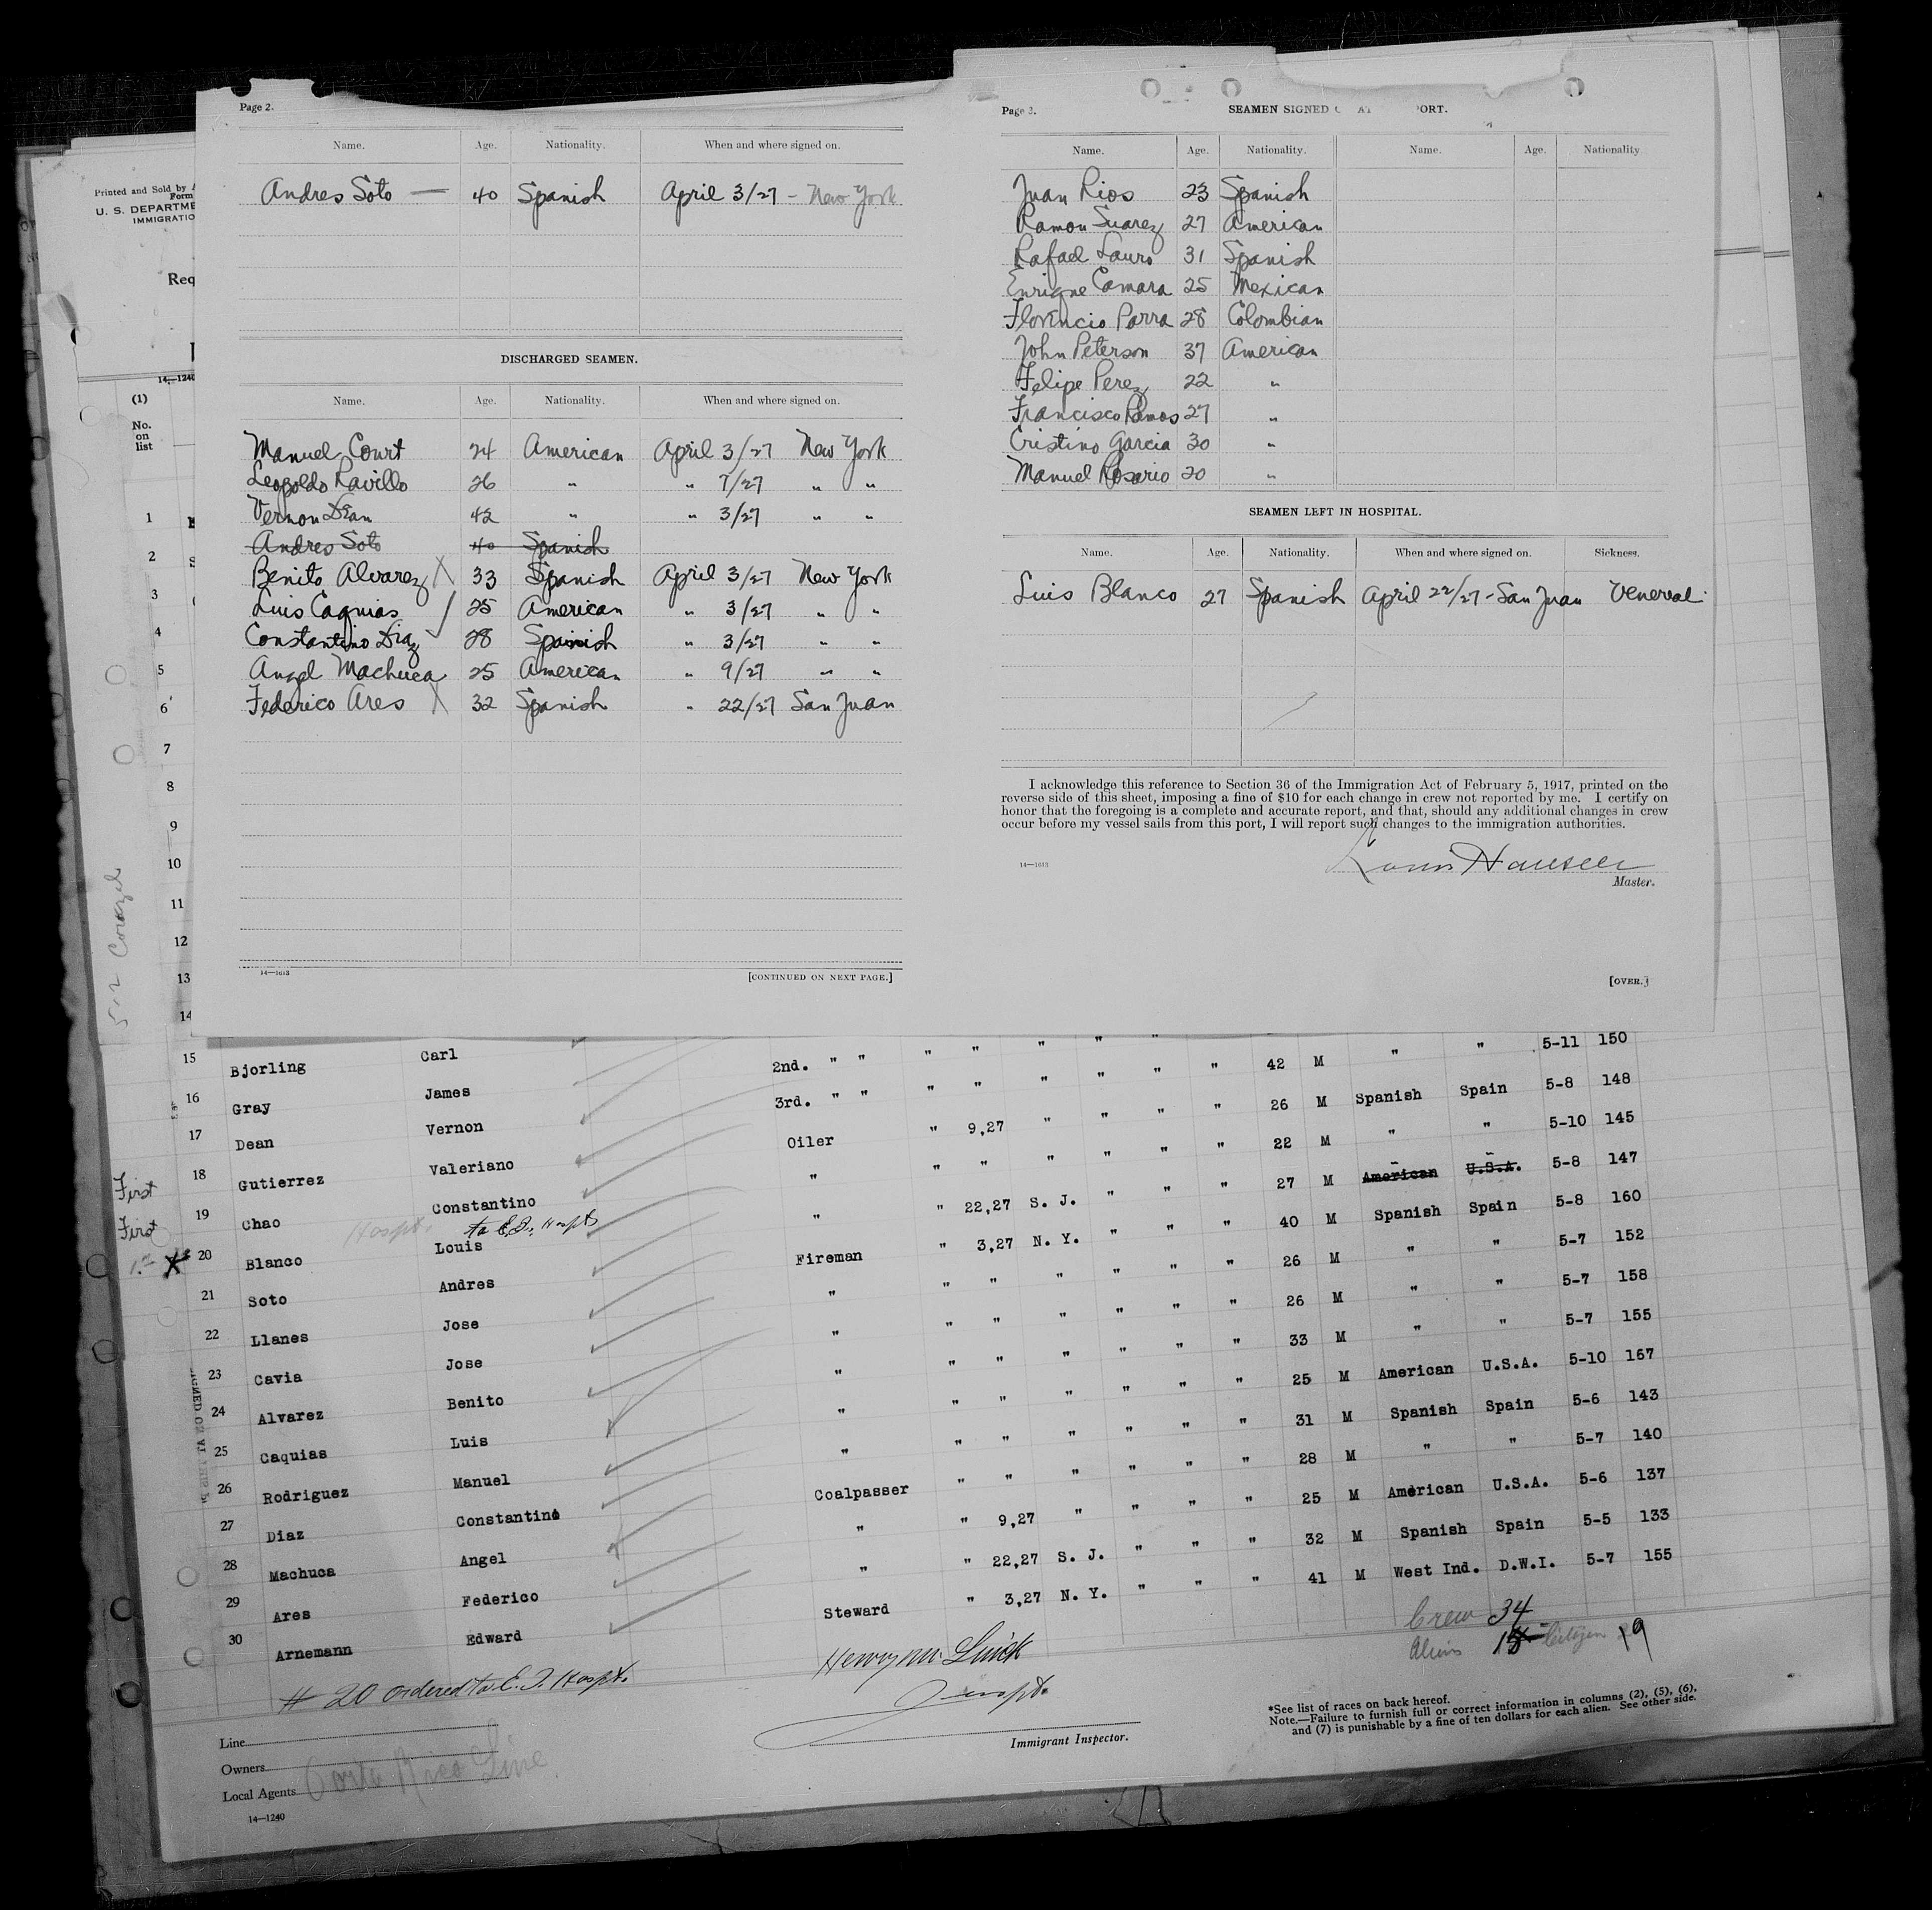 Page 2.
Name. Age. Nationality. When and where signed on.
Andres Soto — 40 Spanish April 3/27 - New York
DISCHARGED SEAMEN.
Name. Age. Nationality. When and where signed on.
Manuel Court 24 American April 3/27 New York
Leopoldo Ravillo 26 " " 7/27 " "
Vernon Dean 42 " " 3/27 " "
Andres Soto 40 Spanish
Benito Alvarez X 33 Spanish April 3/27 New York
Luis Caquias 25 American " 3/27 " "
Constantino Diaz 28 Spanish " 3/27 " "
Angel Machuca 25 American " 9/27 " "
Federico Ares X 32 Spanish " 22/27 San Juan
14—1613 [CONTINUED ON NEXT PAGE.]
Page 3. SEAMEN SIGNED AT PORT.
Name. Age. Nationality. Name. Age. Nationality
Juan Rios 23 Spanish
Ramon Suarez 27 American
Rafael Lauro 31 Spanish
Enrique Camara 25 Mexican
Florincio Parra 28 Colombian
John Peterson 37 American
Felipe Perez 22 "
Francisco Ramos 27 "
Cristino Garcia 30 "
Manuel Rosario 20 "
SEAMEN LEFT IN HOSPITAL.
Name. Age. Nationality. When and where signed on. Sickness.
Luis Blanco 27 Spanish April 22/27 - San Juan Venereal
I acknowledge this reference to Section 36 of the Immigration Act of February 5, 1917, printed on the
reverse side of this sheet, imposing a fine of $10 for each change in crew not reported by me. I certify on
honor that the foregoing is a complete and accurate report, and that, should any additional changes in crew
occur before my vessel sails from this port, I will report such changes to the immigration authorities.
14—1613
Master.
[OVER.]
Printed and Sold by
Form
U. S. DEPARTME
IMMIGRATIO
Req
14—1240
(1)
No.
on
list
1
2
3
4
5
6
7
8
9
10
11
12
13
14
15 Bjorling Carl 2nd. " " " " " " " " 42 M " " 5-11 150
16 Gray James 3rd. " " " " " " " " 26 M Spanish Spain 5-8 148
17 Dean Vernon Oiler " 9,27 " " " " 22 M " " 5-10 145
First 18 Gutierrez Valeriano " " " " " " " 27 M American U.S.A. 5-8 147
First 19 Chao Constantino " " 22,27 S. J. " " " 40 M Spanish Spain 5-8 160
Hospt. to E.I. Hospt
20 Blanco Louis Fireman " 3,27 N. Y. " " " 26 M " " 5-7 152
21 Soto Andres " " " " " " " 26 M " " 5-7 158
22 Llanes Jose " " " " " " " 33 M " " 5-7 155
23 Cavia Jose " " " " " " " 25 M American U.S.A. 5-10 167
24 Alvarez Benito " " " " " " " 31 M Spanish Spain 5-6 143
25 Caquias Luis " " " " " " " 28 M " " 5-7 140
26 Rodriguez Manuel Coalpasser " " " " " " 25 M American U.S.A. 5-6 137
27 Diaz Constantino " " 9,27 " " " " 32 M Spanish Spain 5-5 133
28 Machuca Angel " " 22,27 S. J. " " " 41 M West Ind. D.W.I. 5-7 155
29 Ares Federico Steward " 3,27 N. Y. " " "
30 Arnemann Edward
Crew 34
Aliens 15 Citizen 19
# 20 ordered to E. I. Hospt.
Immigrant Inspector.
*See list of races on back hereof.
Note.—Failure to furnish full or correct information in columns (2), (5), (6),
and (7) is punishable by a fine of ten dollars for each alien. See other side.
Line
Owners
Local Agents Porto Rico Line
14—1240